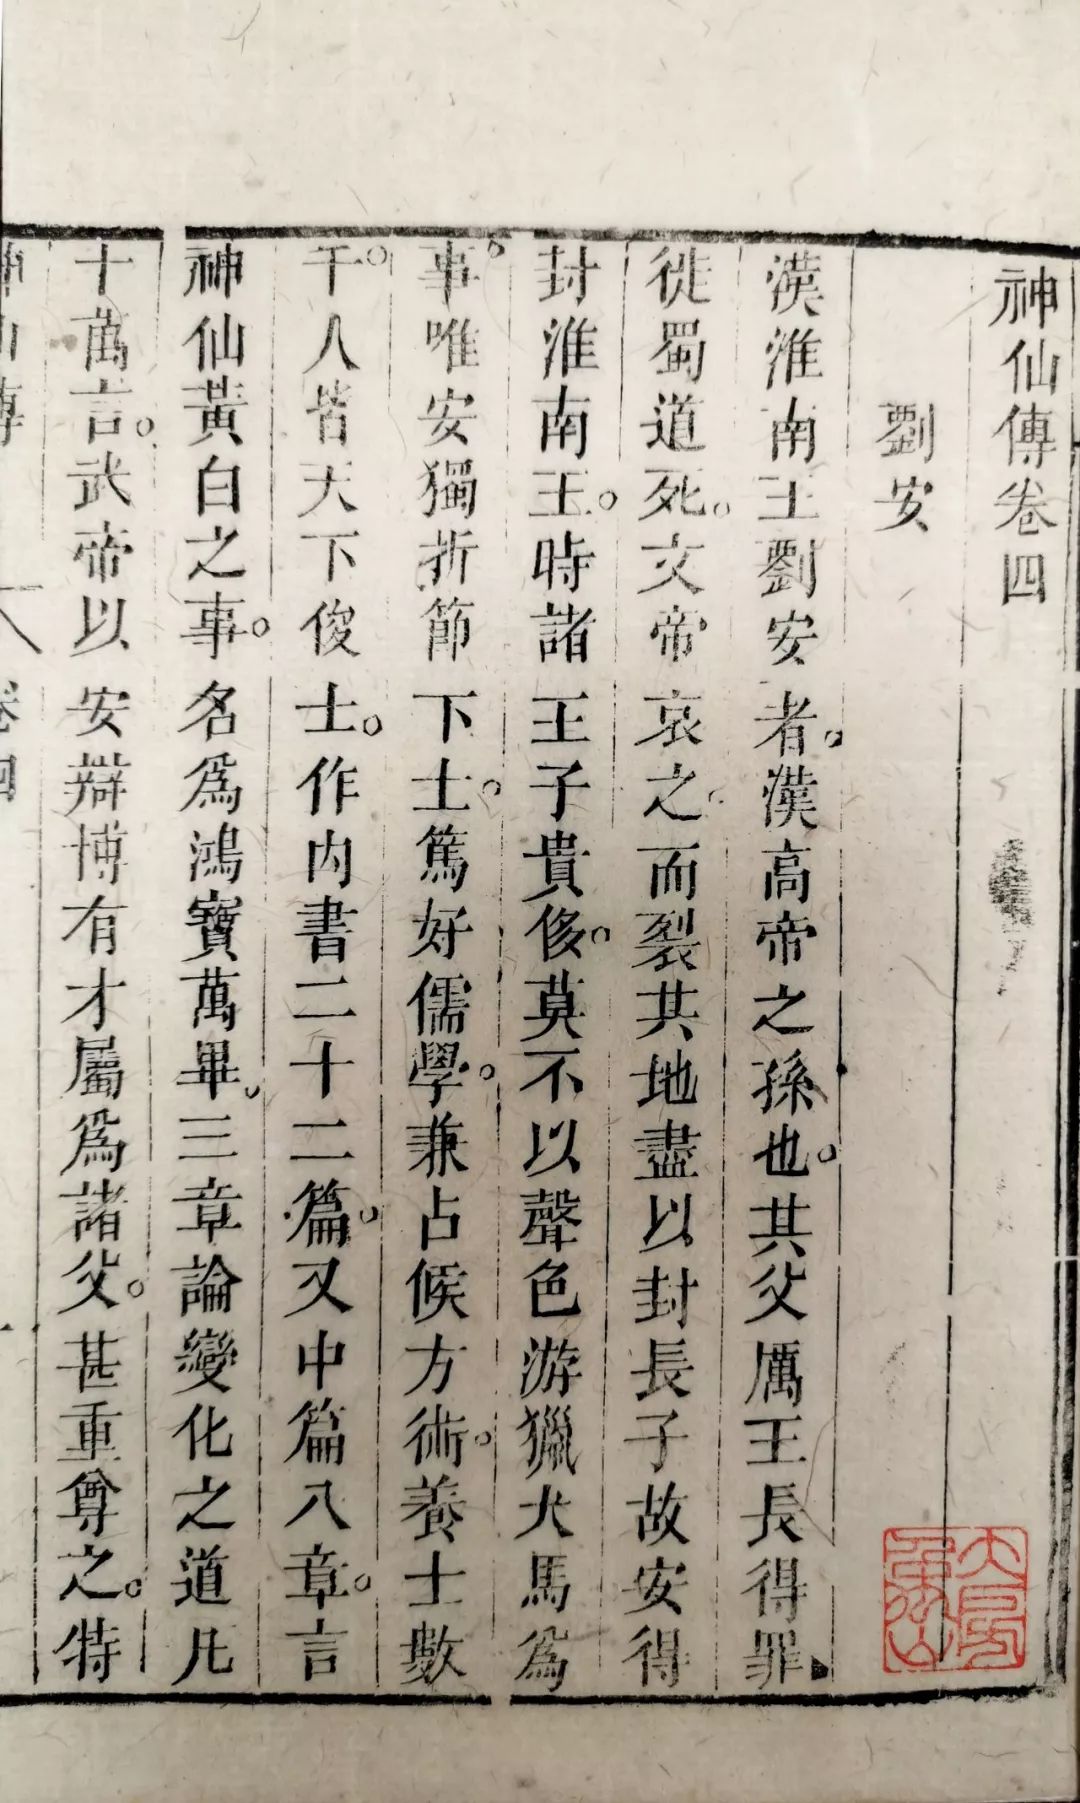 神仙傳卷四
劉安
漢淮南王劉安者。漢高帝之孫也。其父厲王長得罪
徙蜀道死。文帝哀之。而裂其地盡以封長子故安得
封淮南王。時諸王子貴侈。莫不以聲色游獵犬馬為
事。唯安獨折節下士。篤好儒學。兼占候方術。養士數
千。人皆天下俊士。作內書二十二篇。又中篇八章。言
神仙黃白之事。名爲鴻寶萬畢。三章論變化之道凡
十萬言。武帝以安辯博有才屬爲諸父。甚重尊之。特
神仙傳 卷四 一